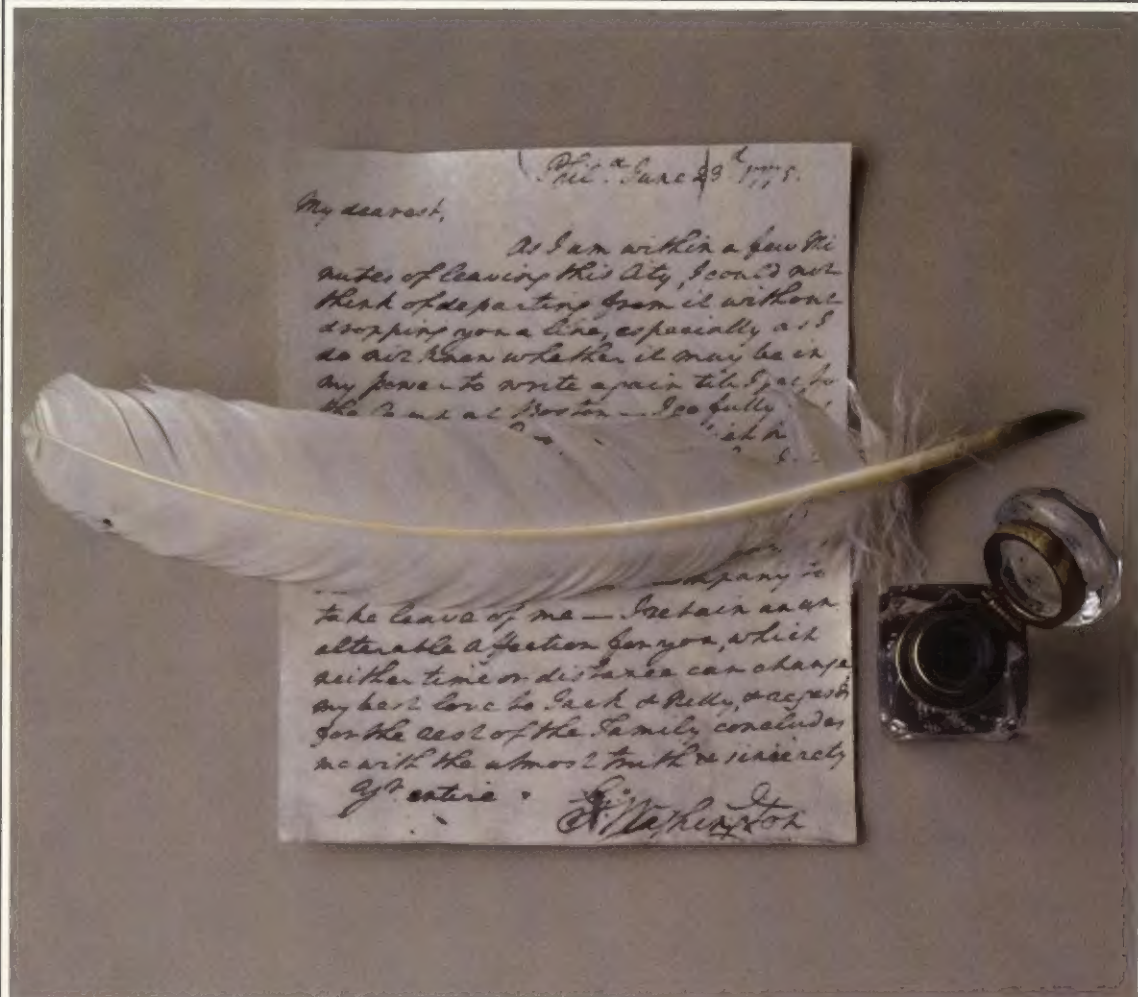 Phila. June 23d 1775.
My dearest,
As I am within a few Mi
nutes of leaving this City, I could not
think of departing from it without
dropping you a line, especially as I
do not know whether it may be in
my power to write again till I get to
the Camp at Boston — I go fully
company to
take leave of me — I retain an un
alterable affection for you, which
neither time or distance can change
my best love to Jack & Nelly, & regard
for the rest of the Family concludes
me with the utmost truth & sincerety
Yr entire
Go: Washington